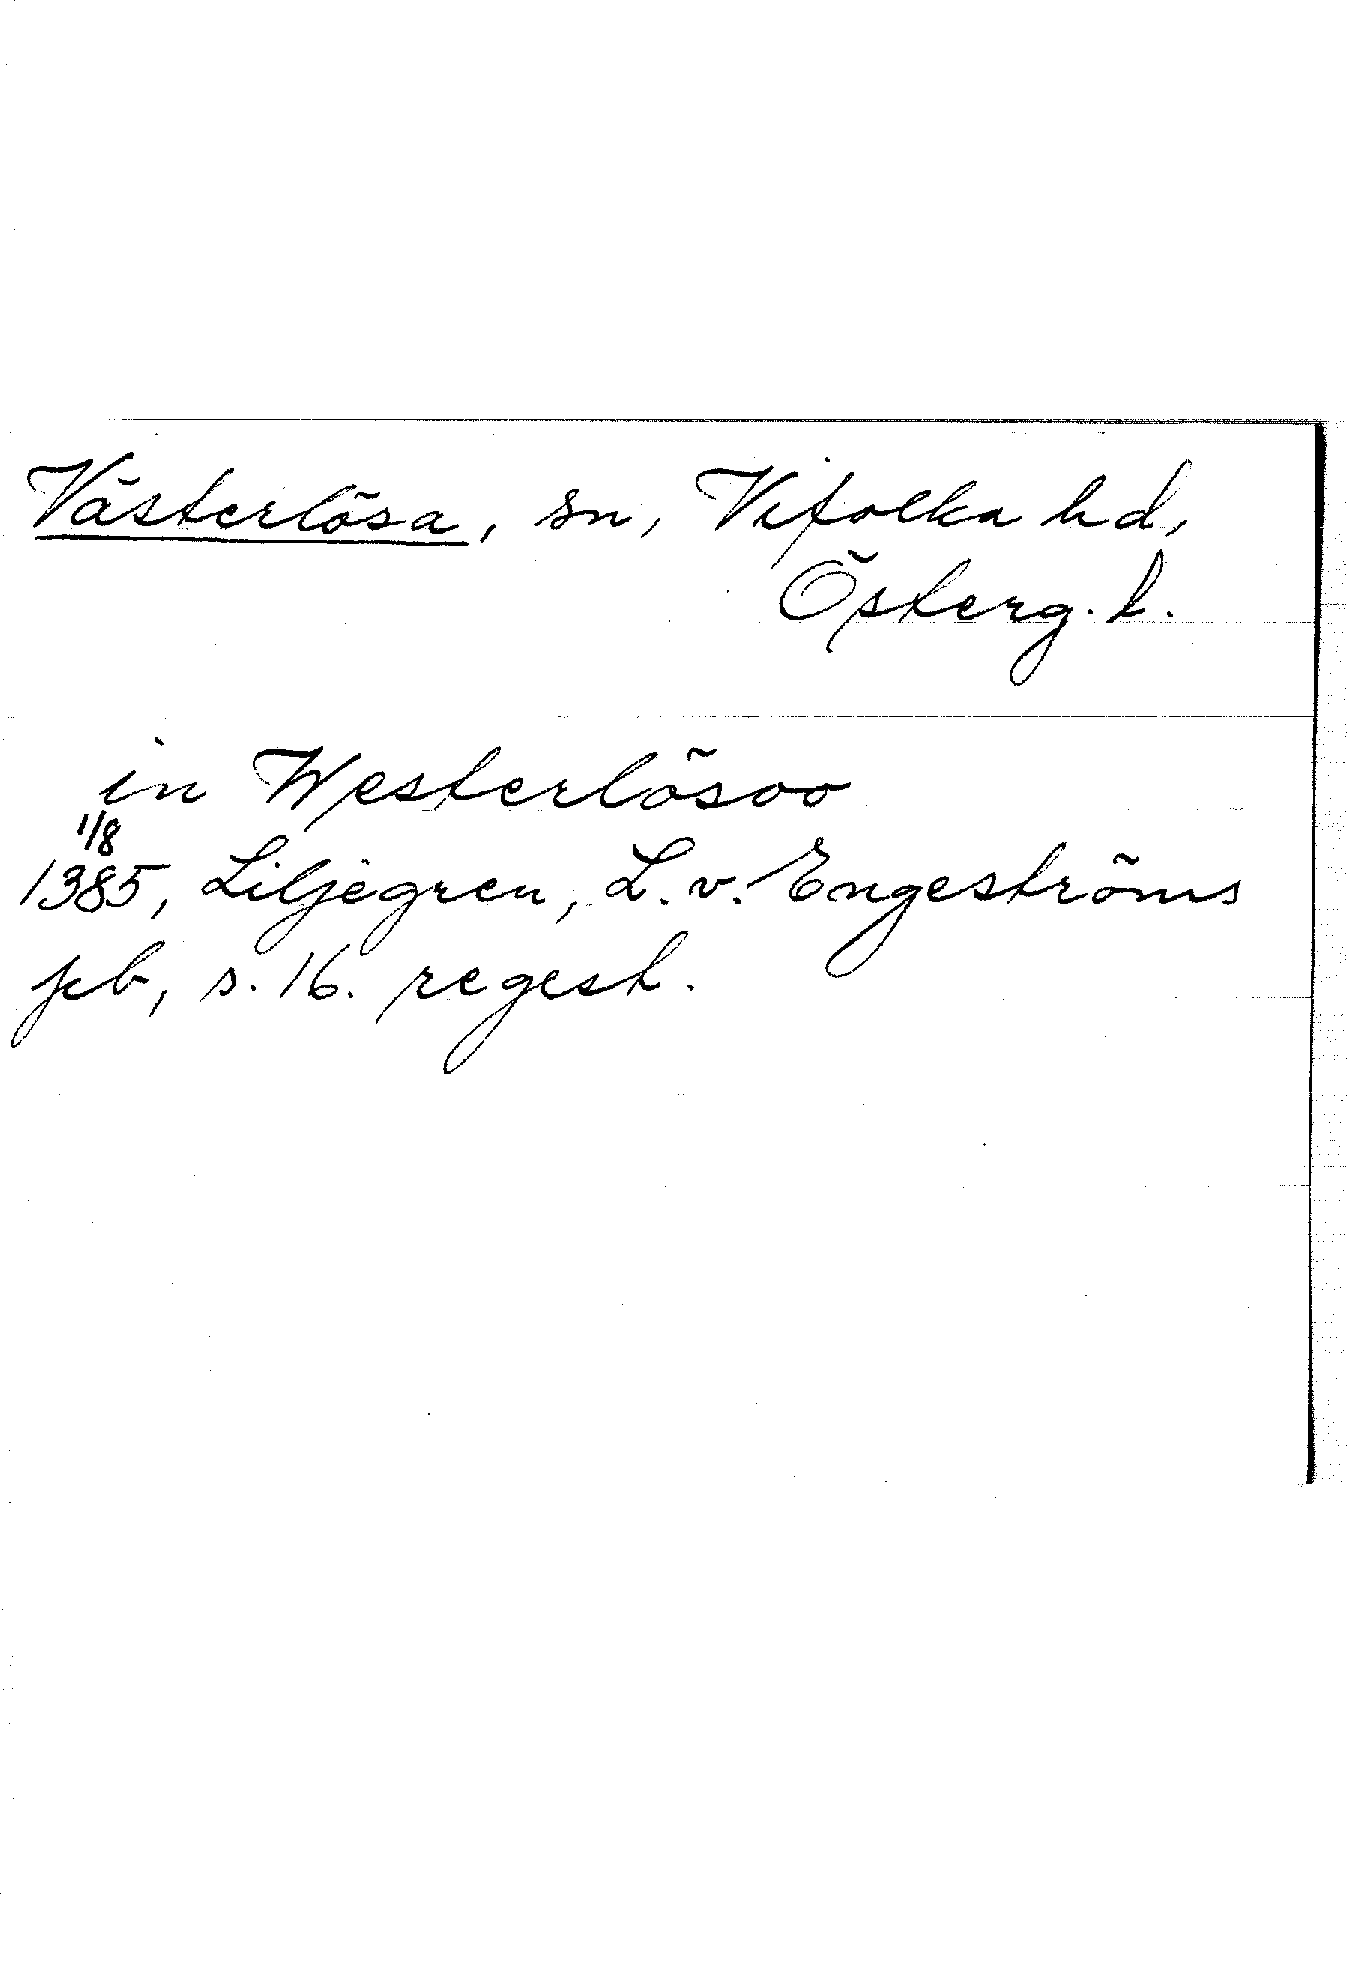 Västerlösa, sn, Vifolka hd,
Österg. l.
in Westerlösoo
1/8
1385, Liljegren, L. v. Engeströms
pb, s. 16. regest.